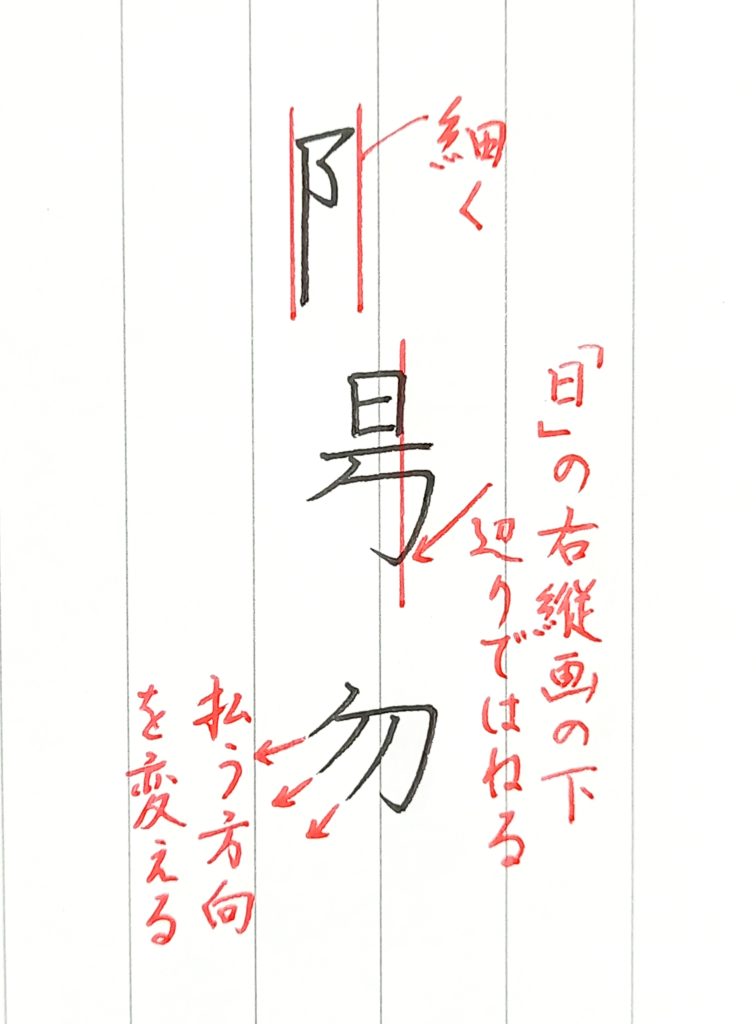 阝
細く
「日」の右縦画の下
辺りではねる
勿
払う方向
を変える